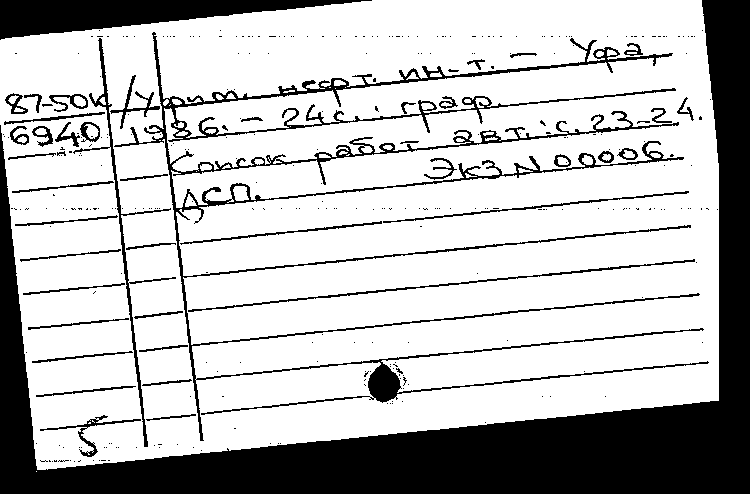 87-50К /Уфим. нефт. ин-т. — Уфа,
6940 1986. — 24 с. : граф.
Список работ авт.: с. 23-24.
ДСП. Экз N 00006.
5